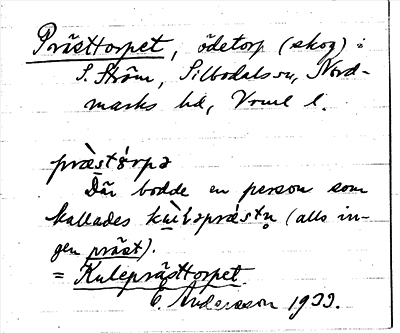 Prästtorpet, ödetorp (skog) i
S. Ström, Silbodals sn, Nord-
marks hd, Vrml l.
præ̀stórpə
Där bodde en person som
kallades kùləprǽstn̥ (alls in-
gen präst).
= Kuleprästtorpet
E. Andersson 1933.